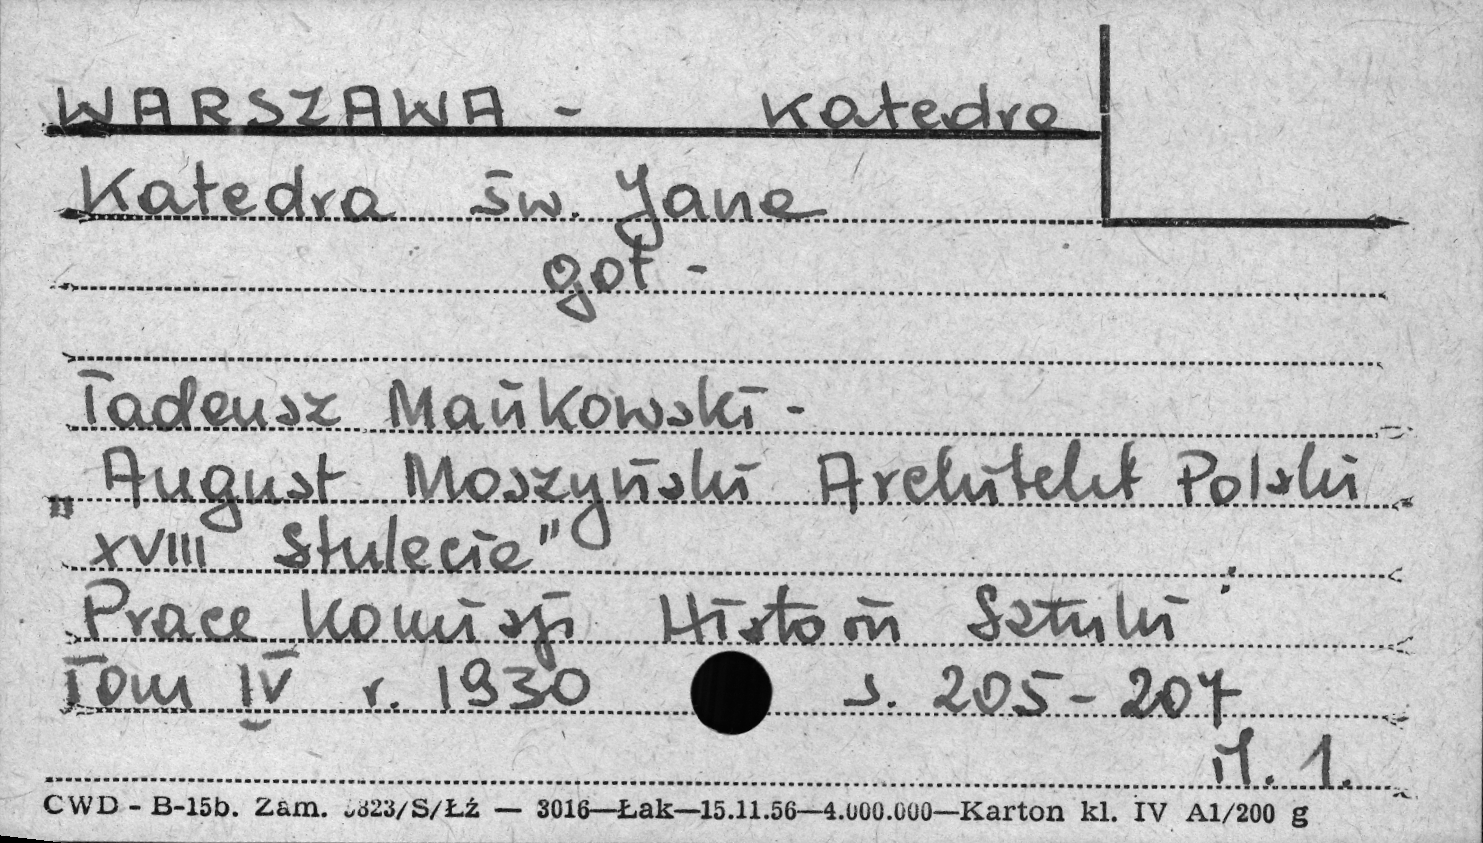 WARSZAWA - Katedra
Katedra św. Jana
got -
Tadeusz Mańkowski -
August Moszyński Architekt Polski
„XVIII Stulecie"
Prace Komisji Historii Sztuki
Tom IV r. 1930 s. 205-207
il. 1.
CWD - B-15b. Zam. 5823/S/Łź — 3016—Łak—15.11.56—4.000.000—Karton kl. IV A1/200 g